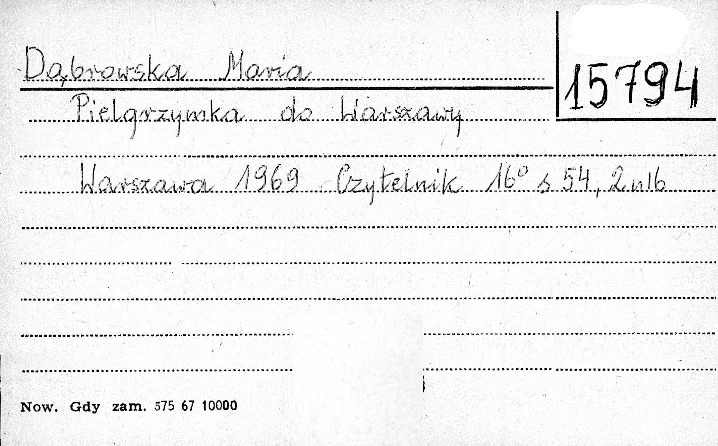 Dąbrowska Maria
15794
Pielgrzymka do Warszawy
Warszawa 1969 Czytelnik 16° s 54, 2 nlb
Now. Gdy zam. 575 67 10000